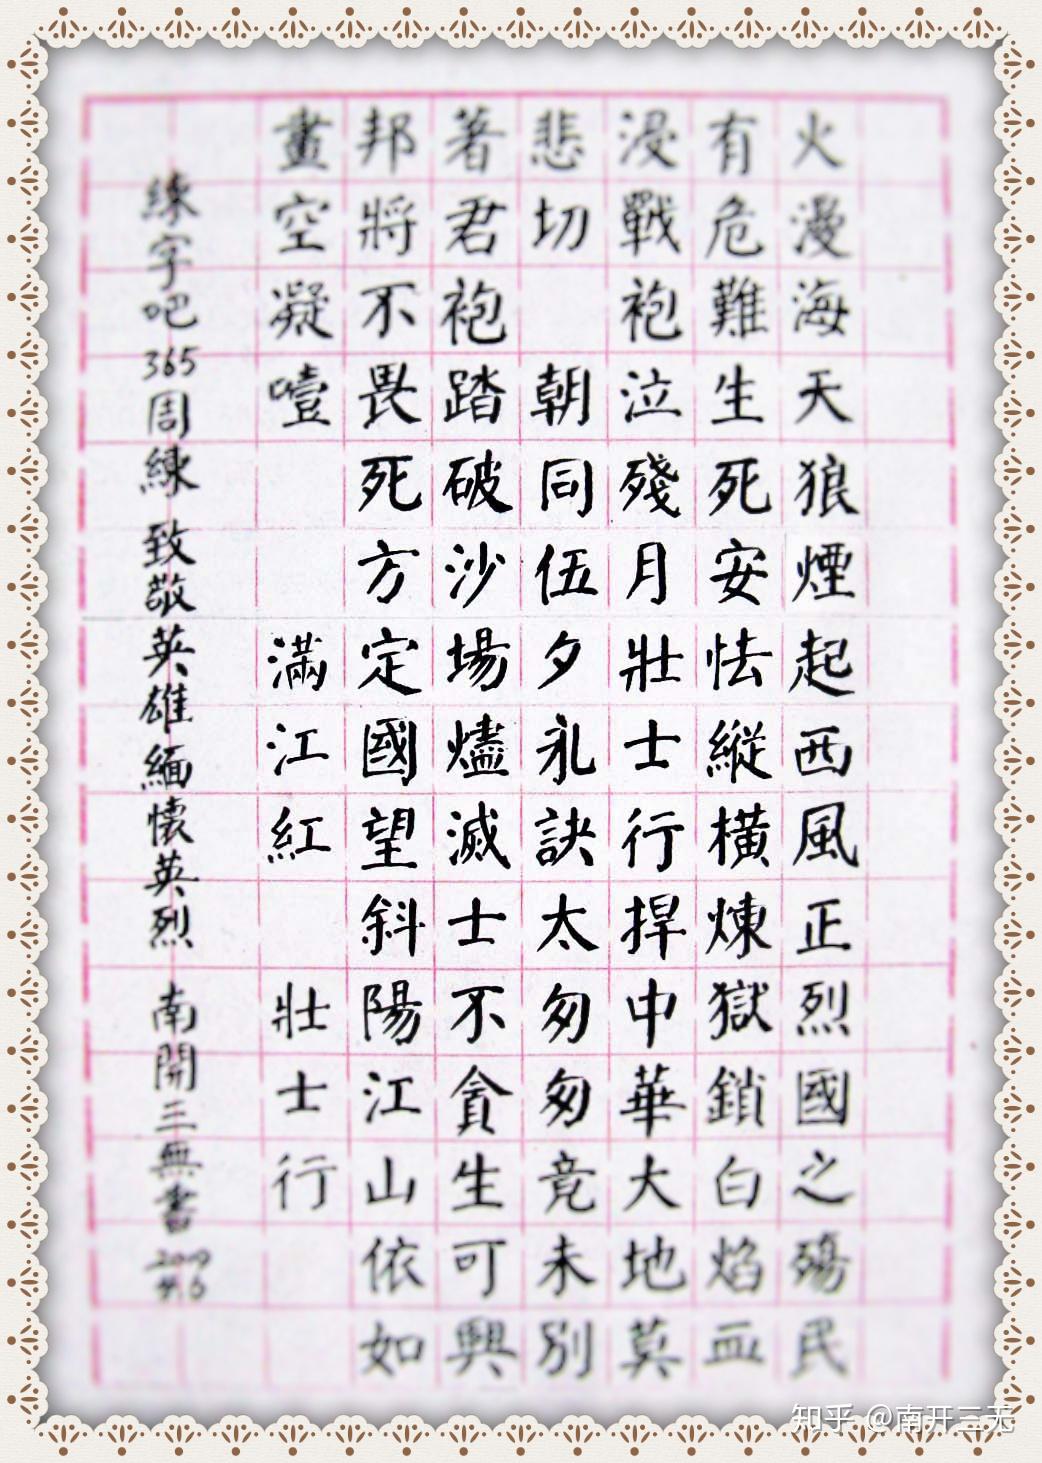 火漫海天狼煙起西風正烈國之殤民
有危難生死安怯縱橫煉獄鎖白焰血
浸戰袍泣殘月壯士行捍中華大地莫
悲切 朝同伍夕永訣太匆匆竟未別
著君袍踏破沙場燼滅士不貪生可興
邦將不畏死方定國望斜陽江山依如
畫空凝噎 滿江紅 壯士行
練字吧365周練 致敬英雄緬懷英烈 南開三無書
知乎 @南开三无